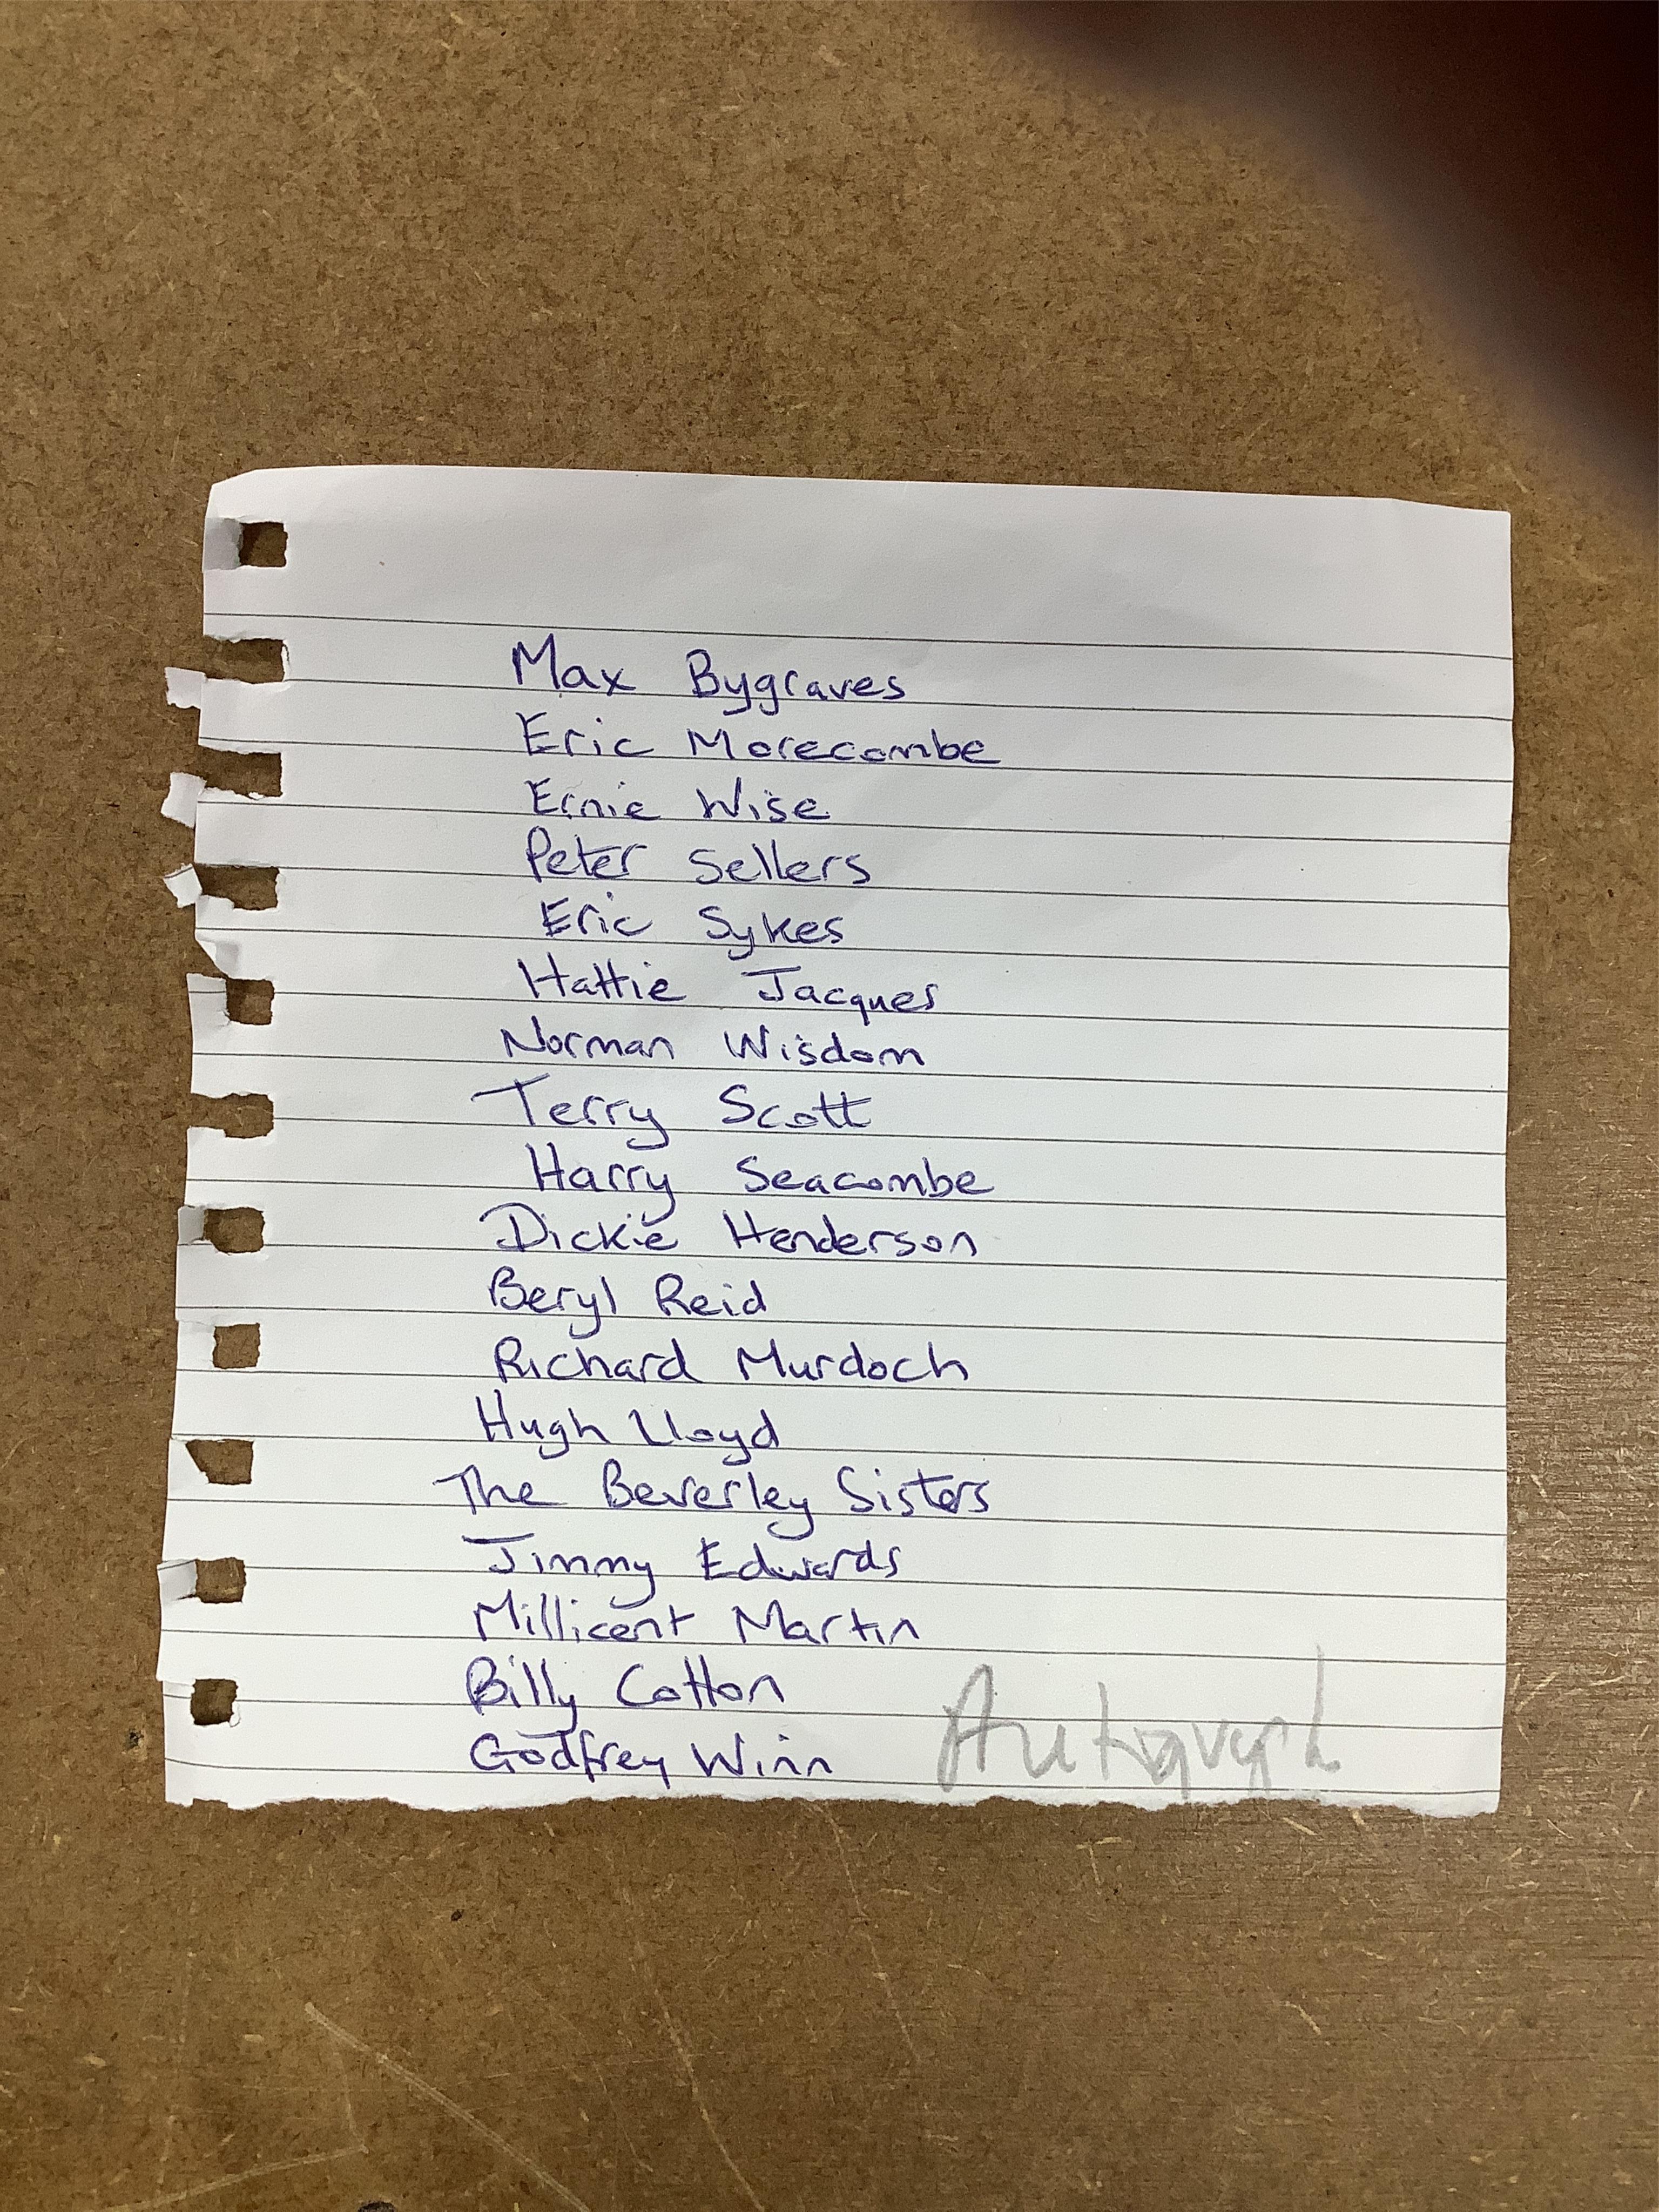 Max Bygraves
Eric Morecombe
Ernie Wise
Peter Sellers
Eric Sykes
Hattie Jacques
Norman Wisdom
Terry Scott
Harry Seacombe
Dickie Henderson
Beryl Reid
Richard Murdoch
Hugh Lloyd
The Beverley Sisters
Jimmy Edwards
Millicent Martin
Billy Cotton
Godfrey Winn